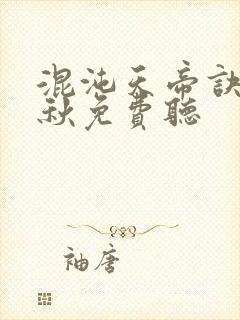 混沌天帝訣
秋免費聽
袖唐